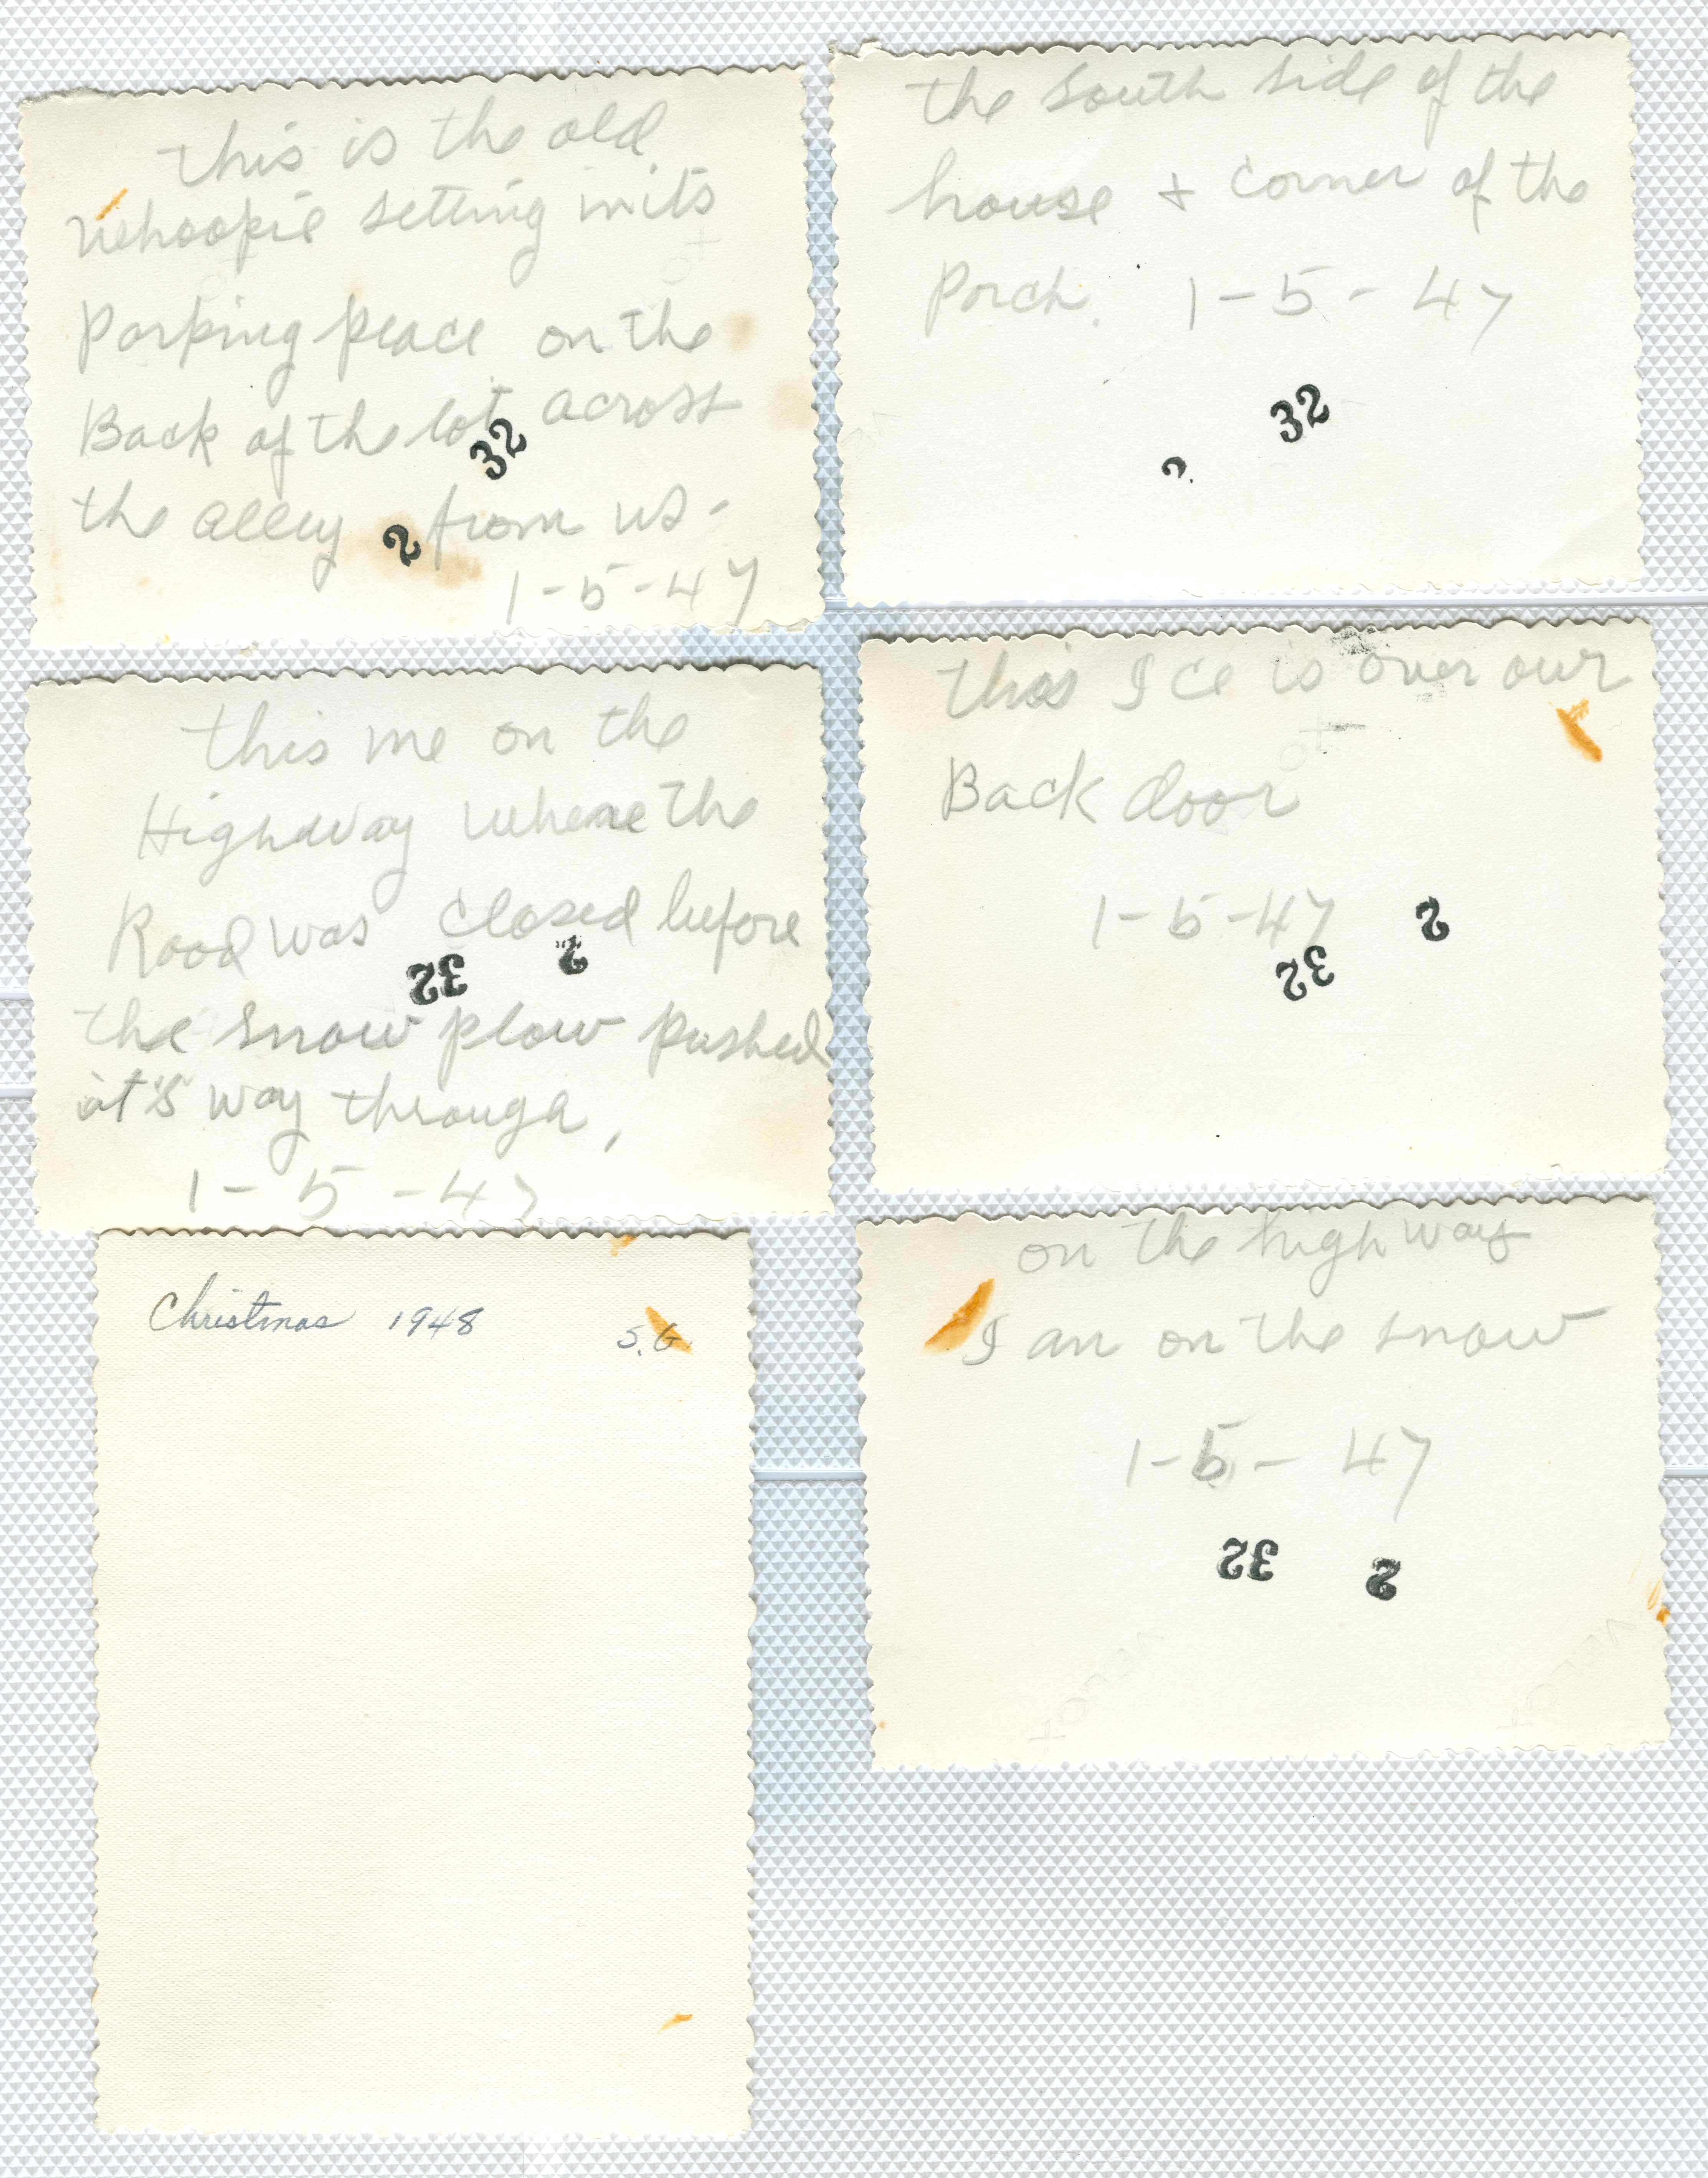 this is the old
Whoopie setting in its
Parking place on the
Back of the lot across
32
the alley from us -
2
1-5-47
the South side of the
house + corner of the
Porch. 1-5-47
32
2
this me on the
Highway where the
Road was closed before
32 2
the snow plow pushed
it's way through,
1-5-47
this Ice is over our
Back door
1-5-47
2
32
Christmas 1948
S.G.
on the highway
I am on the snow
1-5-47
32 2